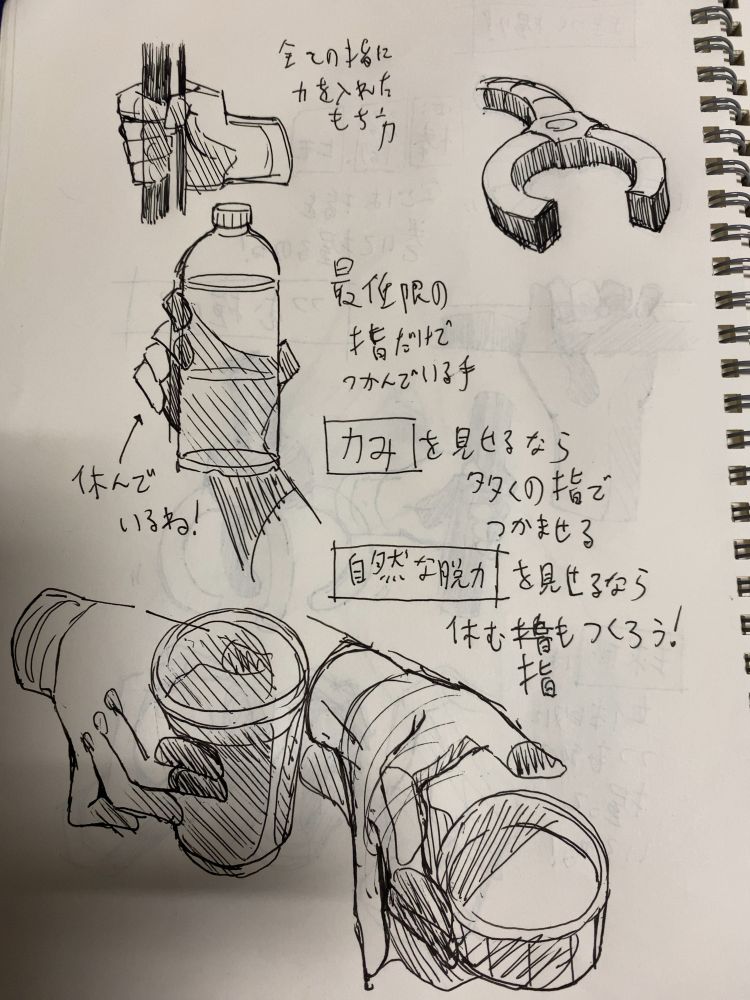 全ての指に
力を入れた
もち方
最低限の
指だけで
つかんでいる手
休んで
いるね!
力み を見せるなら
多くの指で
つかませる
自然な脱力 を見せるなら
休む指もつくろう!
指